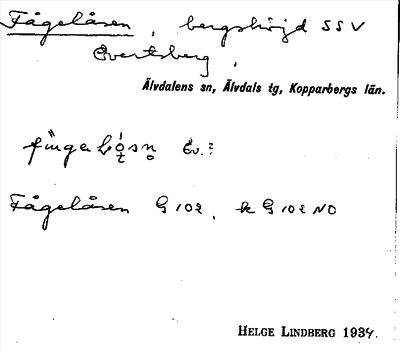 Fågelåsen, bergshöjd SSV
Evertsberg,
Älvdalens sn, Älvdals tg, Kopparbergs län.
Ev.:
Fågelåsen G 102, k G 102 NO
HELGE LINDBERG 1934.